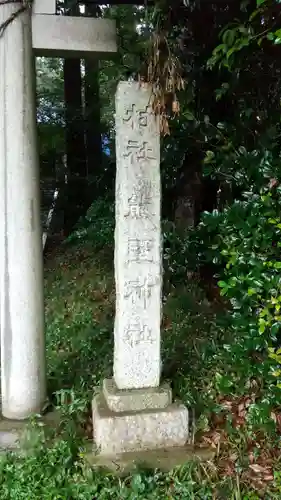 村社熊野神社